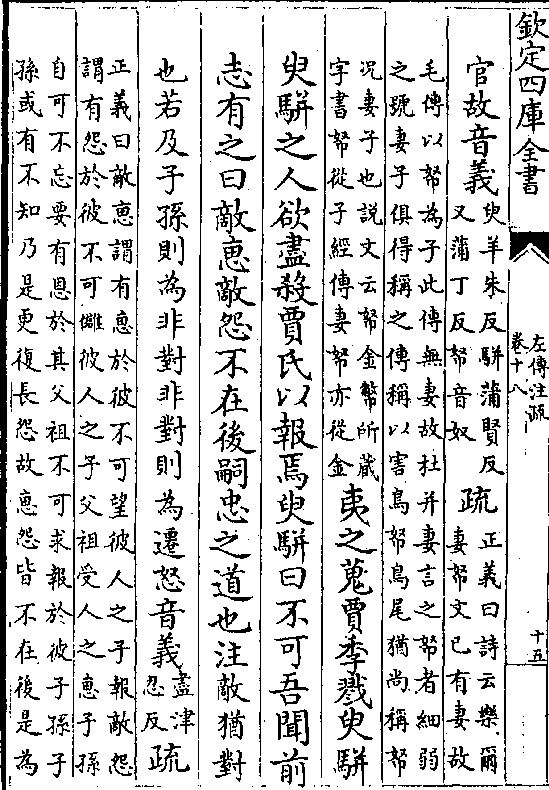 欽定四庫全書
左傳注疏
卷十八
十五
官故音義
臾羊朱反駢蒲賢反
又蒲丁反帑音奴
疏
正義曰詩云樂爾
妻帑文已有妻故
毛傳以帑為子此傳無妻故杜并妻言之帑者細弱
之號妻子俱得稱之傳稱以害鳥帑鳥尾猶尚稱帑
况妻子也説文云帑金幣所藏
字書帑從子經傳妻帑亦從金
夷之蒐賈季戮臾駢
臾駢之人欲盡殺賈氏以報焉臾駢曰不可吾聞前
志有之曰敵惠敵怨不在後嗣忠之道也注敵猶對
也若及子孫則為非對非對則為遷怒音義
盡津
忍反
疏
正義曰敵惠謂有惠於彼不可望彼人之子報敵怨
謂有怨於彼不可讎彼人之子父祖受人之惠子孫
自可不忘要有恩於其父祖不可求報於彼子孫子
孫或有不知乃是更復長怨故惠怨皆不在後是為